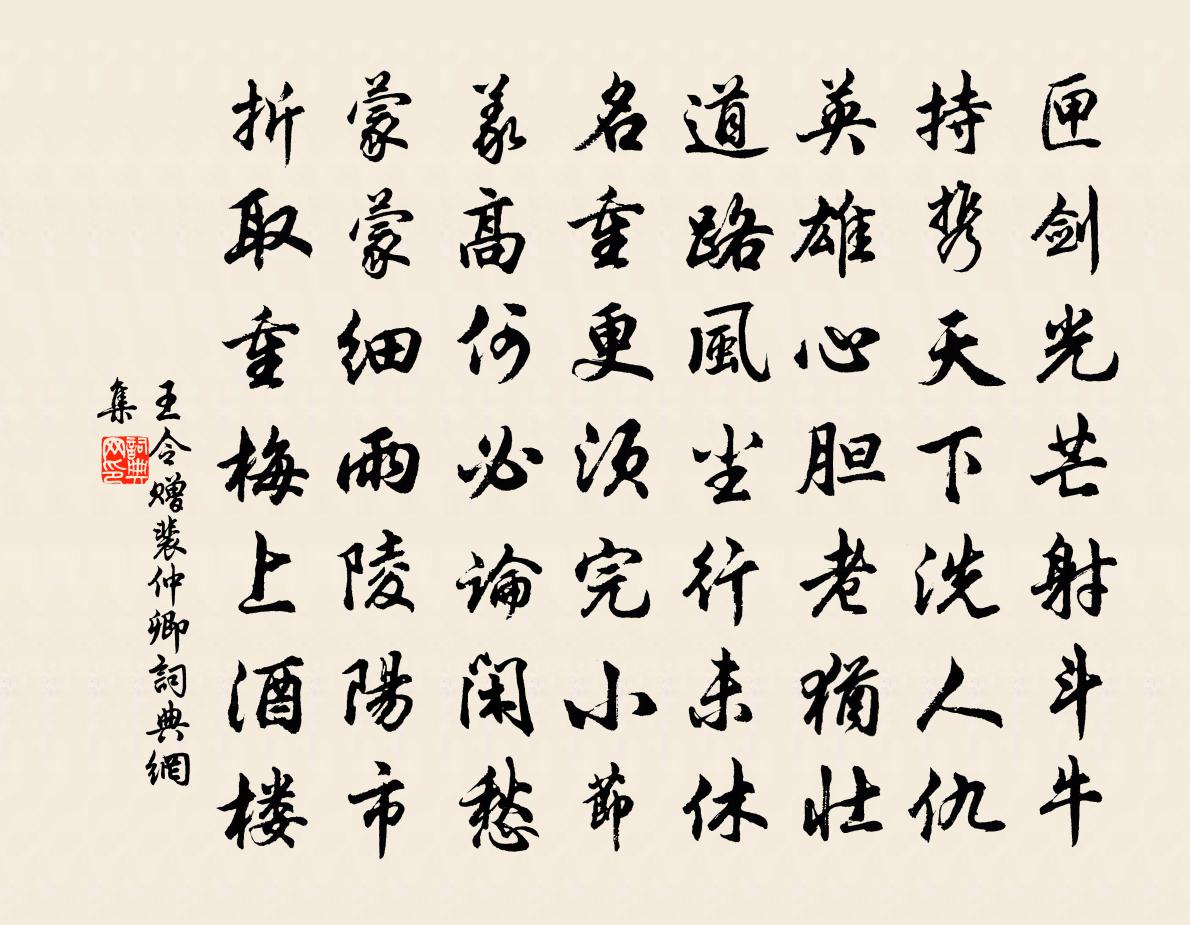 匣剑光芒射斗牛
持携天下洗人仇
英雄心胆老犹壮
道路風尘行未休
名重更须完小節
義高何必論闲愁
蒙蒙细雨陵陽市
折取重梅上酒楼
王令赠裴仲卿詞典網
集
詞典
网印